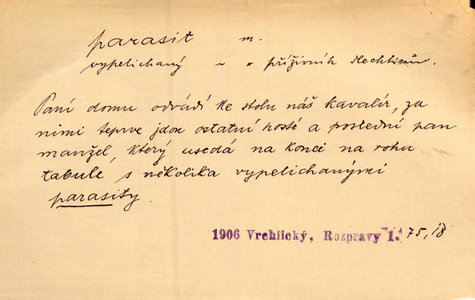 parasit m.
vypelichaný ~ " příživník šlechticův.
Paní domu odvádí ke stolu náš kavalír, za
nimi teprve jdou ostatní hosté a poslední pan
manžel, který usedá na konci na rohu
tabule s několika vypelichanými
parasity.
1906 Vrchlický, Rozpravy 1. 75, 18